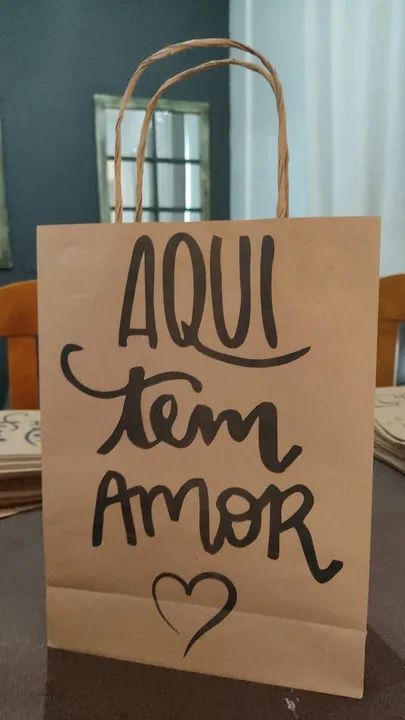 AQUI
tem
AMOR